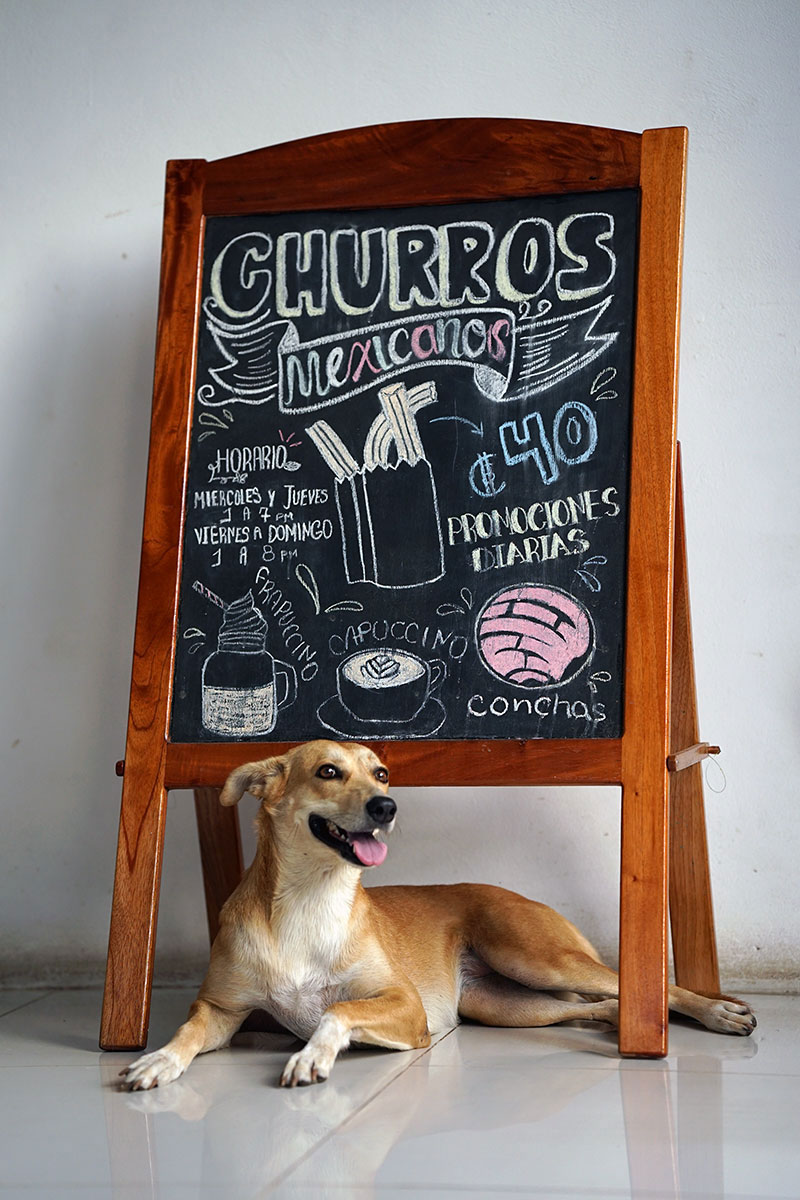 CHURROS
Mexicanos
HORARIO
₡40
MIERCOLES Y JUEVES
1 A 7 PM
VIERNES A DOMINGO
1 A 8 PM
PROMOCIONES
DIARIAS
FRAPUCCINO
CAPUCCINO
conchas